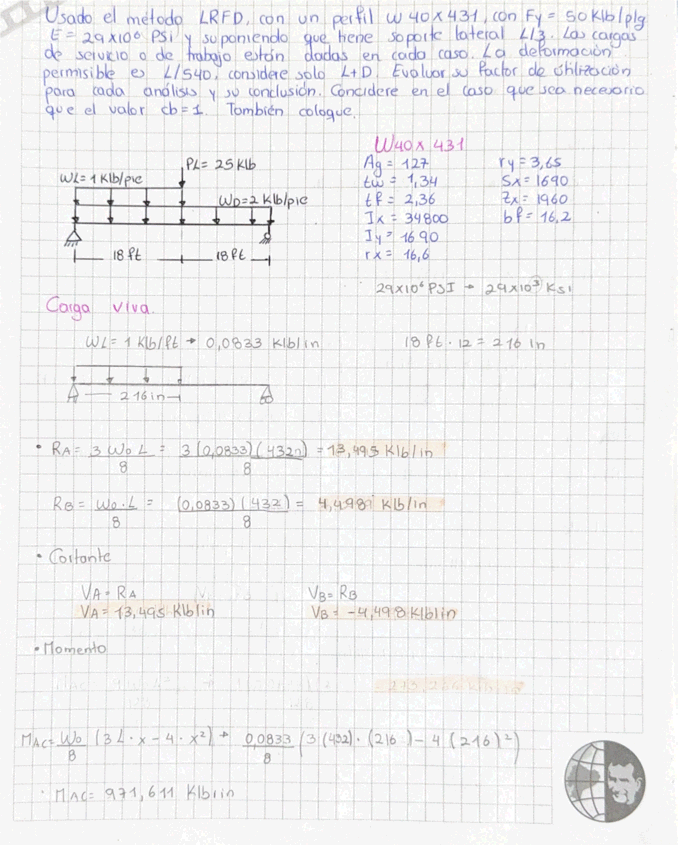 Usado el metodo LRFD, con un perfil W 40 x 431, con Fy = 50 Klb/plg
E = 29x10⁶ PSI y suponiendo que tiene soporte lateral L/3. Las cargas
de servicio o de trabajo están dadas en cada caso. La deformación
permisible es L/540, considere solo L+D. Evaluar su factor de utilización
para cada análisis y su conclusión. Concidere en el caso que sea necesario
que el valor cb=1. También coloque.
W40 x 431
PL= 25 Klb
WL= 1 Klb/pie
WD=2 Klb/pie
18 ft
18 ft
Ag = 127
ry = 3,65
tw = 1,34
Sx = 1690
tf = 2,36
Zx = 1960
Ix = 34800
bf = 16,2
Iy = 1690
rx = 16,6
29x10⁶ PSI → 29x10³ Ksi
Carga viva.
WL= 1 Klb/ft → 0,0833 Klb/in
18 ft · 12 = 216 in
216 in
• RA = 3 Wo L / 8 = 3(0,0833)(432) / 8 = 13,495 Klb/in
RB = Wo · L / 8 = (0,0833)(432) / 8 = 4,498 Klb/in
• Cortante
VA = RA
VB = RB
VA = 13,495 Klb/in
VB = -4,498 Klb/in
• Momento
MAC = Wo / 8 (3 L · x - 4 · x²) → 0,0833 / 8 (3 (432) · (216) - 4 (216)²)
· MAC = 971,611 Klb·in